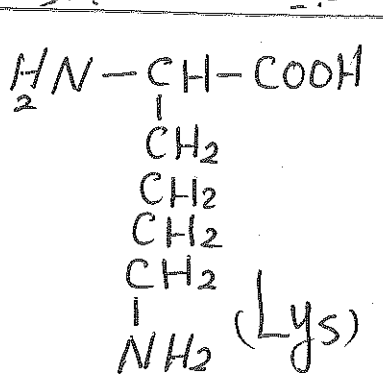 H2N-CH-COOH
CH2
CH2
CH2
CH2
NH2 (Lys)